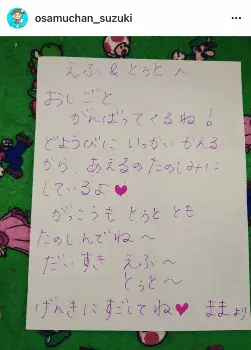 osamuchan_suzuki
えふ & とぅと へ
おしごと
がんばってくるね!
どようびに いっかい かえる
から、あえるの たのしみに
しているよ♥
がっこうも とぅと とも
たのしんでね〜
だいすき えふ〜
とぅと〜
げんきに すごしてね♥ ままより